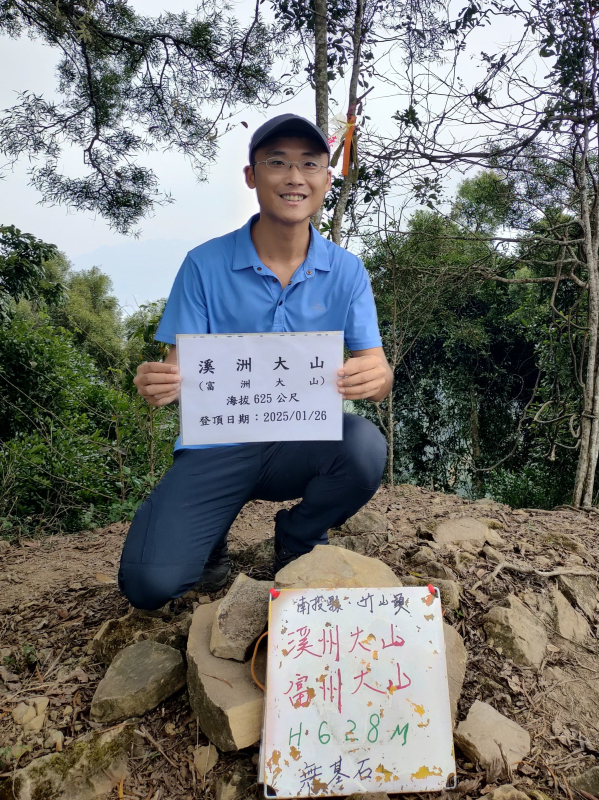 溪洲大山
(富洲大山)
海拔 625 公尺
登頂日期：2025/01/26
南投縣 竹山鎮
溪州大山
富州大山
H 628M
無基石